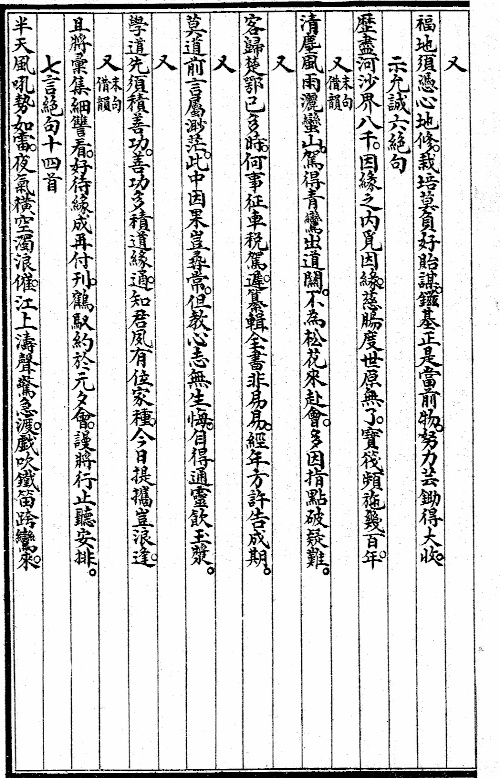 又
福地須憑心地修。栽培莫負好貽謀。鎡基正是當前物。努力芸鋤得大收。
示允誠六絕句
歷盡河沙界八千。因緣之內覓因緣。慈腸度世原無了。寶筏頻施幾百年
又 末句借韻
清塵風雨灑蠻山。駕得青鸞出道關。不為松花來赴會。多因指點破疑難。
又
客歸楚鄂已多時。何事征車稅駕遲。纂輯全書非易易。經年方許告成期。
又
莫道前言屬渺茫。此中因果豈尋常。但教心志無生悔。自得通靈飲玉漿。
又
學道先須積善功。善功多積道緣通。知君夙有位家種。今日提攜豈浪逢。
又 末句借韻
且將彙集細讐看。好待緣成再付刊。鶴馭約於元夕會。謾將行止聽安排。
七言絕句十四首
半天風吼勢如雷。夜氣橫空濁浪催。江上濤聲驚急渡。戲吹鐵笛跨鸞來。